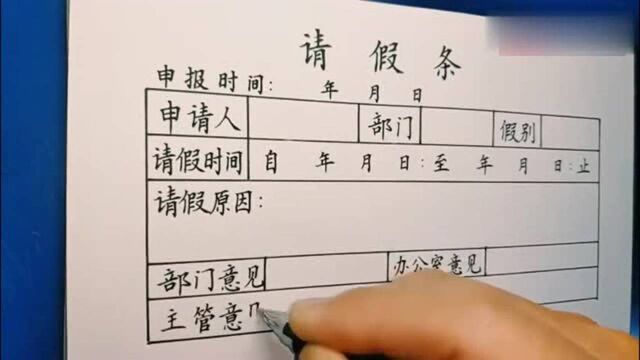 请假条
申报时间: 年 月 日
申请人 部门 假别
请假时间 自 年 月 日:至 年 月 日:止
请假原因:
部门意见 办公室意见
主管意